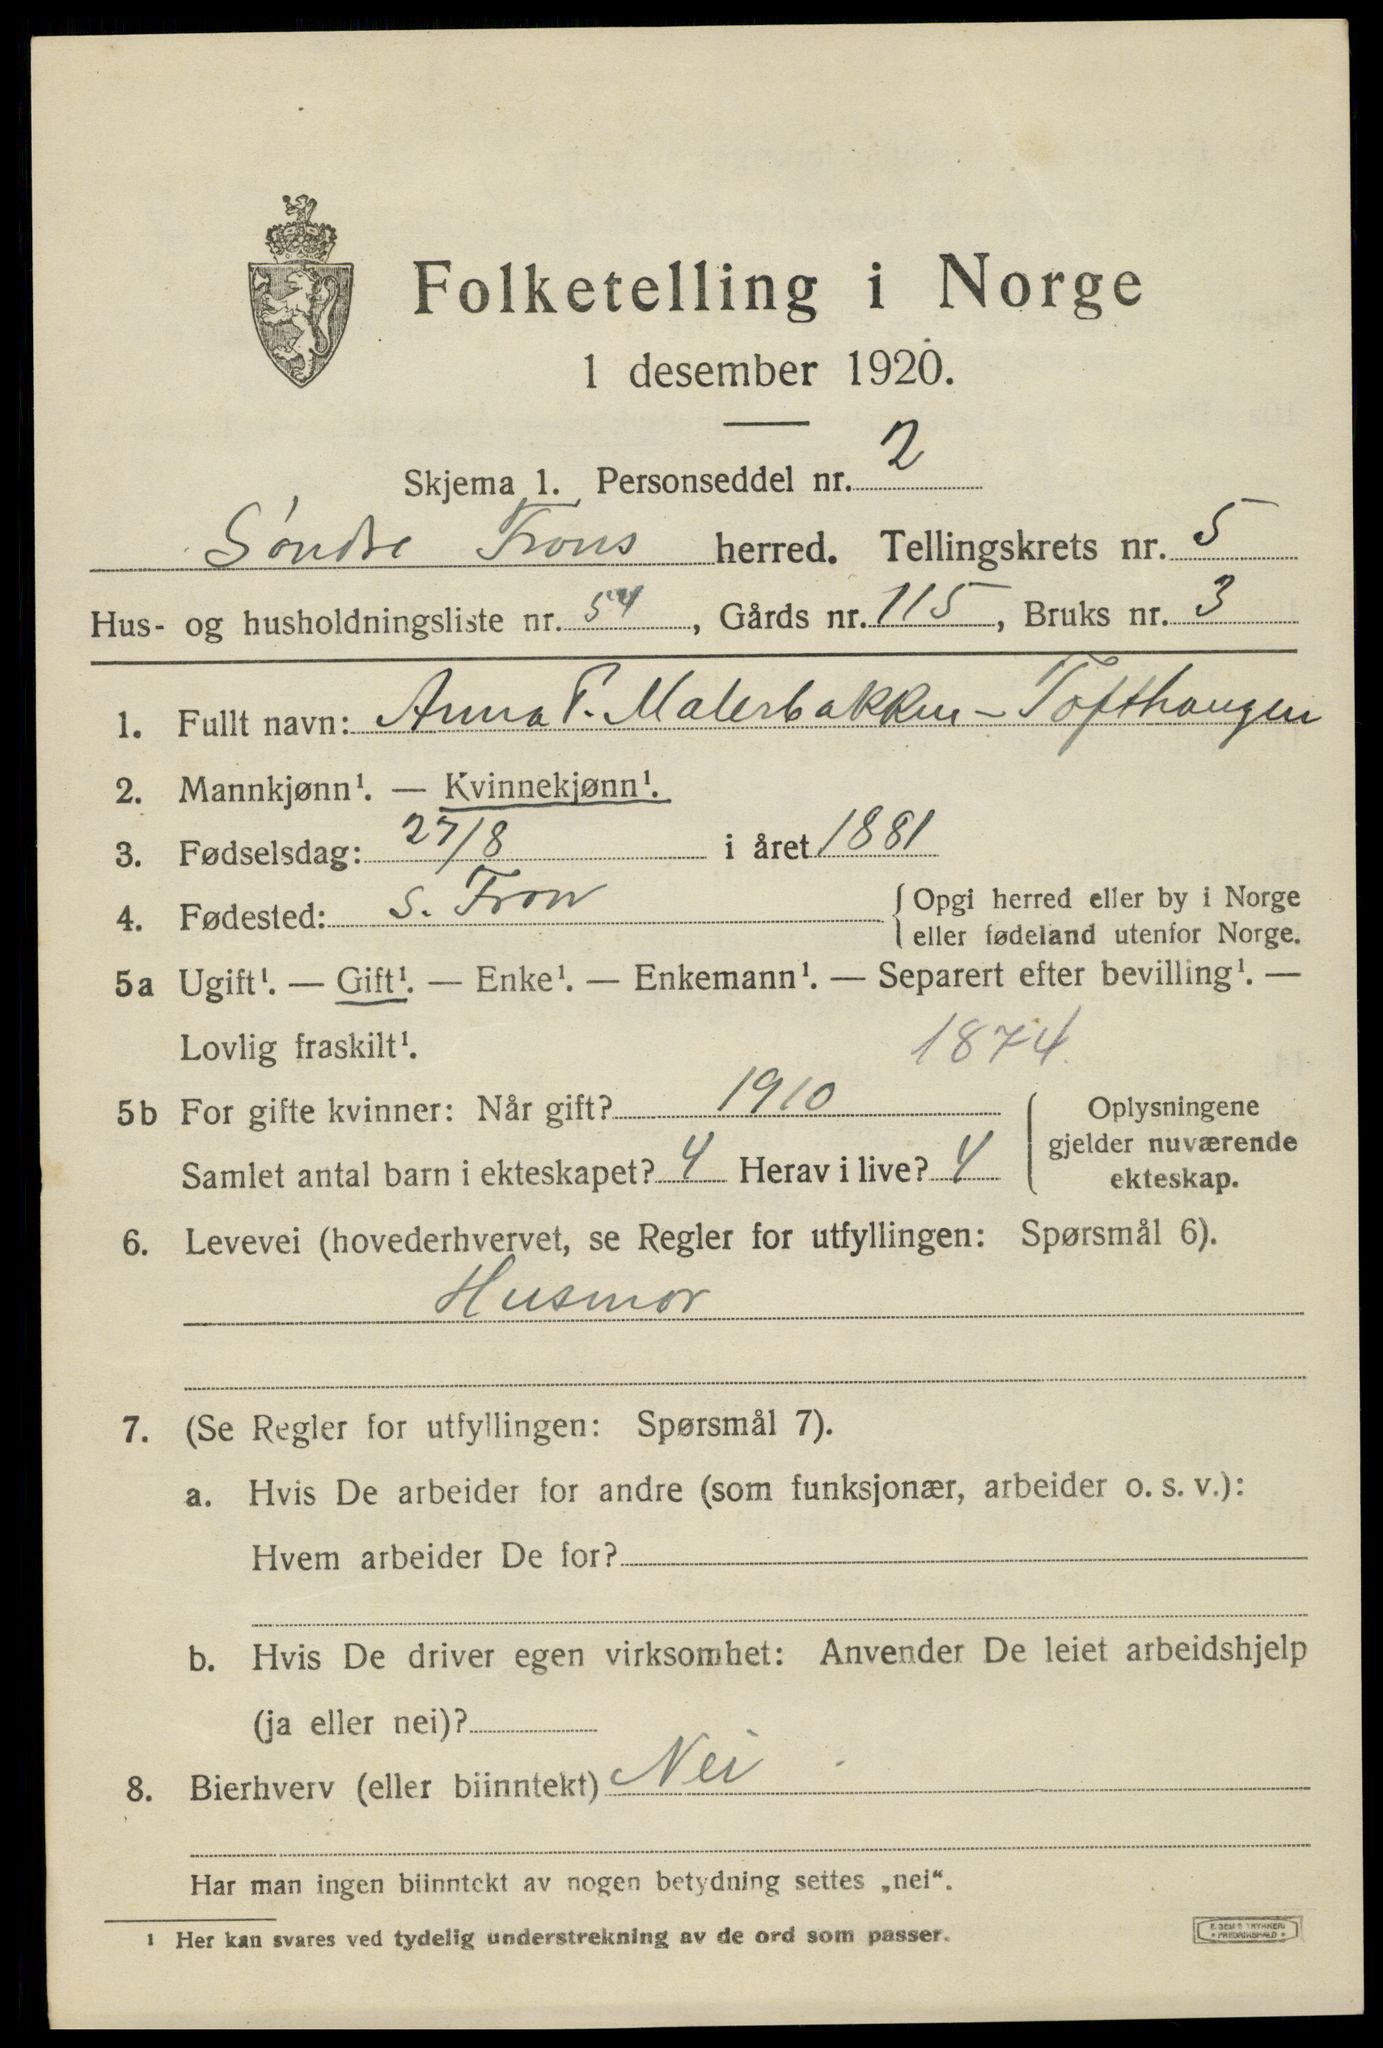 Folketelling i Norge
1 desember 1920.
Skjema 1. Personseddel nr. 2
Søndre Frons herred. Tellingskrets nr. 5
Hus- og husholdningsliste nr. 54, Gårds nr. 115, Bruks nr. 3
1. Fullt navn: Anna P. Malerbakken - Tofthaugen
2. Mannkjønn¹. — Kvinnekjønn¹.
3. Fødselsdag: 27/8 i året 1881
4. Fødested: S. Fron { Opgi herred eller by i Norge
eller fødeland utenfor Norge.
5a Ugift¹. — Gift¹. — Enke¹. — Enkemann¹. — Separert efter bevilling¹. —
Lovlig fraskilt¹. 1874
5b For gifte kvinner: Når gift? 1910 { Oplysningene
gjelder nuværende
Samlet antal barn i ekteskapet? 4 Herav i live? 4 ekteskap.
6. Levevei (hovederhvervet, se Regler for utfyllingen: Spørsmål 6).
Husmor
7. (Se Regler for utfyllingen: Spørsmål 7).
a. Hvis De arbeider for andre (som funksjonær, arbeider o. s. v.):
Hvem arbeider De for?
b. Hvis De driver egen virksomhet: Anvender De leiet arbeidshjelp
(ja eller nei)?
8. Bierhverv (eller biinntekt) Nei
Har man ingen biinntekt av nogen betydning settes „nei“.
1 Her kan svares ved tydelig understrekning av de ord som passer.
FREDRIKSHALD